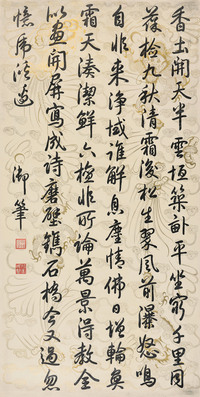 香台開天半雲垣築畝平坐窮千里目
葆檢九秋清霜後松生翠風前瀑怒鳴
自非来淨域誰解息塵情佛日增輪奐
霜天湊潔鮮六極非所論萬景得教全
以畫開屏寫成詩磨壁鐫石橋今又過忽
憶虎溪邊
御筆